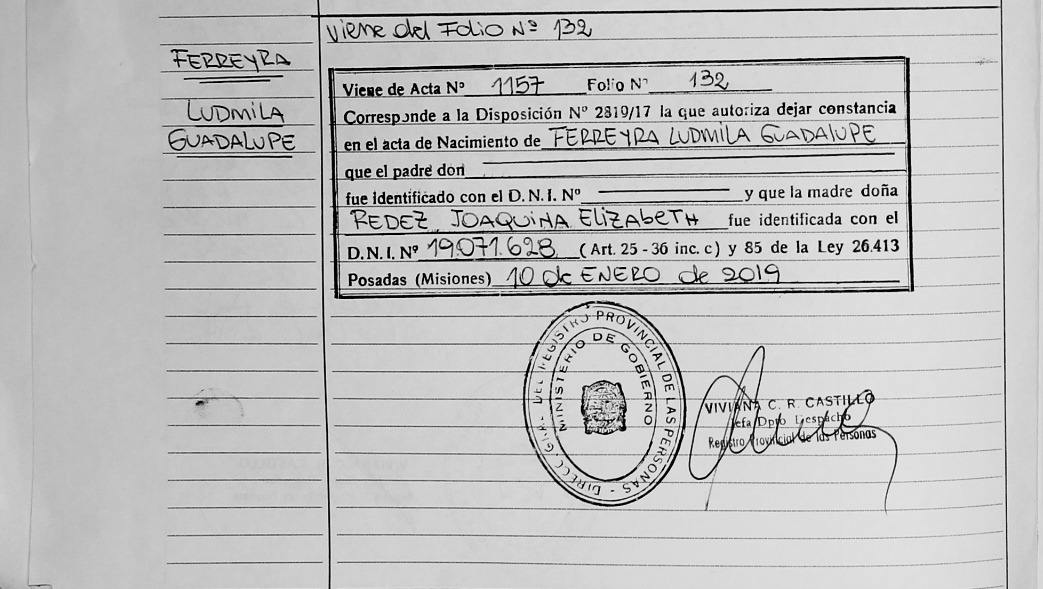 Viene del Folio Nº 132
FERREYRA
LUDMILA
GUADALUPE
Viene de Acta Nº 1157 Folio Nº 132
Corresponde a la Disposición Nº 2819/17 la que autoriza dejar constancia
en el acta de Nacimiento de FERREYRA LUDMILA GUADALUPE
que el padre don
fue identificado con el D.N.I. Nº y que la madre doña
REDEZ JOAQUINA ELIZABETH fue identificada con el
D.N.I. Nº 19.071.628 (Art. 25 - 36 inc. c) y 85 de la Ley 26.413
Posadas (Misiones) 10 de ENERO de 2019
DIRECC. GRAL DEL REGISTRO PROVINCIAL DE LAS PERSONAS -
MINISTERIO DE GOBIERNO
VIVIANA C. R. CASTILLO
Jefa Dpto Despacho
Registro Provincial de las Personas